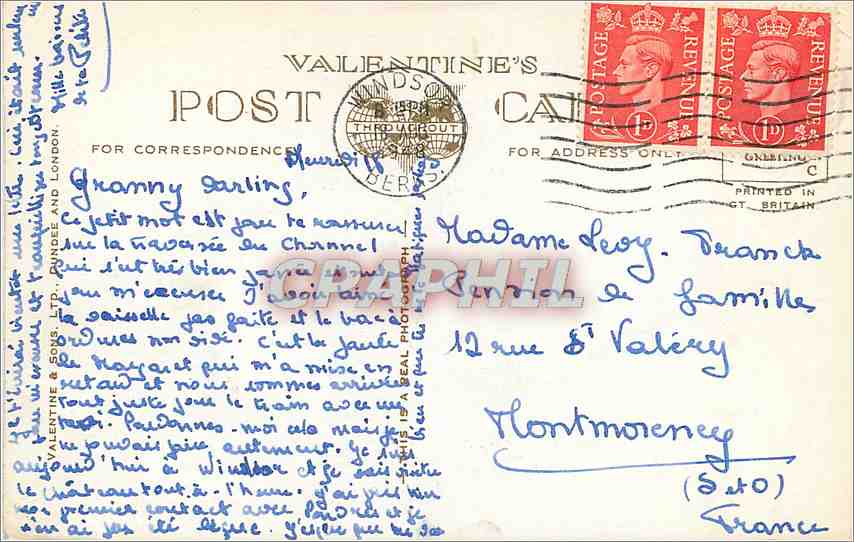 VALENTINE'S
POST CAR
FOR CORRESPONDENCE
FOR ADDRESS ONLY
WINDSOR
15
THROUGHOUT
1948
BERKS.
POSTAGE REVENUE
1D
POSTAGE REVENUE
1D
GREETING
C
PRINTED IN
GT. BRITAIN
VALENTINE & SONS. LTD., DUNDEE AND LONDON.
THIS IS A REAL PHOTOGRAPH
CPAPHIL
Granny darling,
Ce petit mot est pour te rassurer
sur la traversée du Channel
qui s'est très bien passée et
pour m'excuser d'avoir
la vaisselle pas faite et le bac à
ordures non vidé. C'est la faute
de Margaret qui m'a mise en
retard et nous sommes arrivées
tout juste pour le train avec un
taxi. Pardonnes-moi cela mais je
ne pouvais faire autrement. Je suis
aujourd'hui à Windsor et je vais visiter
le château tout-à-l'heure. J'ai pris
mon premier contact avec Londres et je
n'en ai pas été déçue. J'espère que
bien et que
Je t'écrirai bientôt une lettre. Ceci était seulement
pour m'excuser et
Mille baisers
de ta Petite
Madame Levy-Franck
Pension de familles
12 rue St Valéry
Montmorency
(S et O)
France